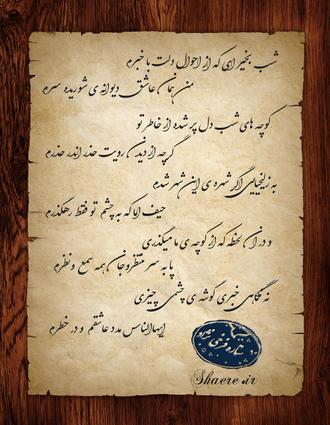 شب بخیر ای که از احوال دلت با خبرم
من همان عاشق دیوانه ی شوریده سرم
کوچه های شب دل پر شده از خاطر تو
گرچه از دیدن رویت حذر اندر حذرم
به زلیخایی اگر شهره ی این شهر شدم
حیف اما که به چشم تو فقط رهگذرم
و در آن لحظه که از کوچه ی ما میگذری
پا به سر منتظر و جان همه سمع و نظرم
نه نگاهی خبری گوشه ی چشمی چیزی
ایها الناس مدد عاشقم و در خطرم
ستاره فرخی
Shaere.ir